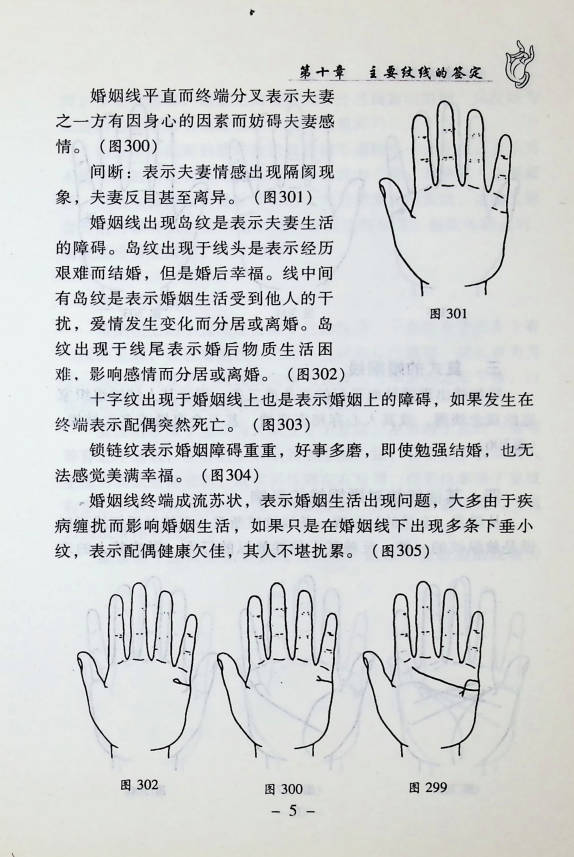 第十章 主要纹线的签定
婚姻线平直而终端分叉表示夫妻
之一方有因身心的因素而妨碍夫妻感
情。（图300）
间断：表示夫妻情感出现隔阂现
象，夫妻反目甚至离异。（图301）
婚姻线出现岛纹是表示夫妻生活
的障碍。岛纹出现于线头是表示经历
艰难而结婚，但是婚后幸福。线中间
有岛纹是表示婚姻生活受到他人的干
扰，爱情发生变化而分居或离婚。岛
纹出现于线尾表示婚后物质生活困
难，影响感情而分居或离婚。（图302）
十字纹出现于婚姻线上也是表示婚姻上的障碍，如果发生在
终端表示配偶突然死亡。（图303）
锁链纹表示婚姻障碍重重，好事多磨，即使勉强结婚，也无
法感觉美满幸福。（图304）
婚姻线终端成流苏状，表示婚姻生活出现问题，大多由于疾
病缠扰而影响婚姻生活，如果只是在婚姻线下出现多条下垂小
纹，表示配偶健康欠佳，其人不堪扰累。（图305）
图 301
图 302
图 300
图 299
- 5 -